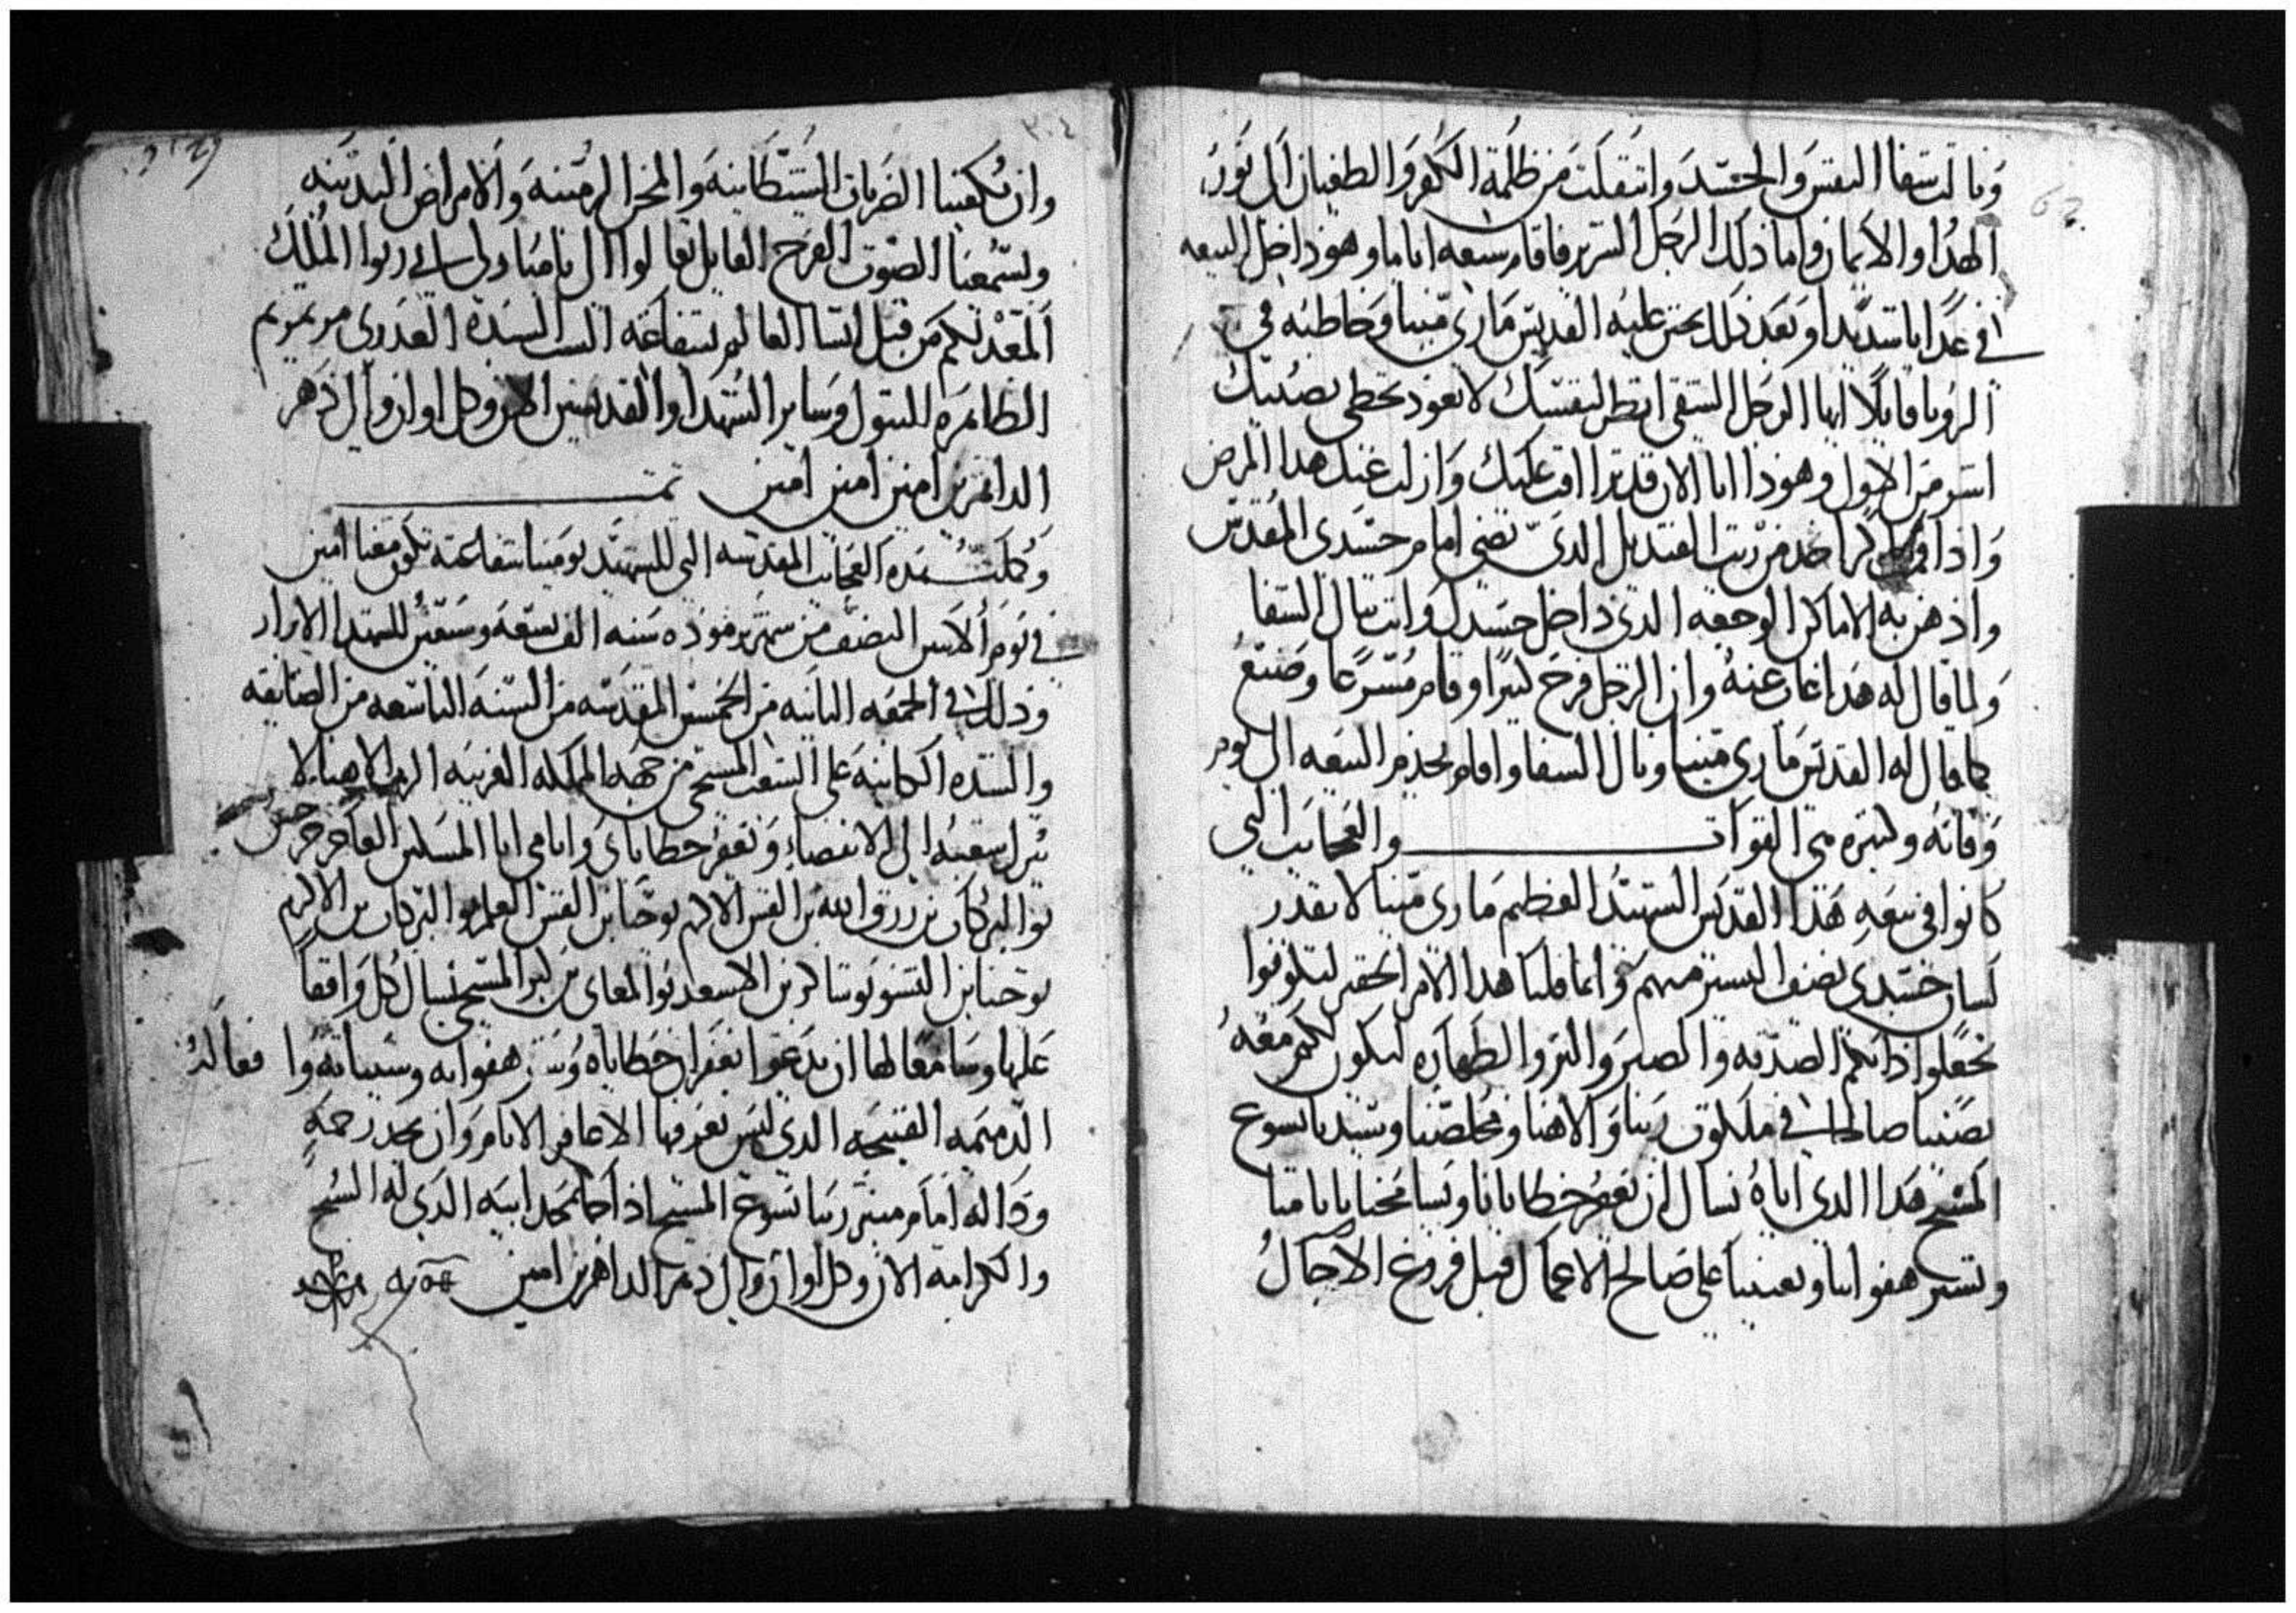 ونالت شفا النفس والجسد وانتقلت من ظلمة الكفر والطغيان الى نور
الهدا والايمان واما ذلك الرجل الشرير فاقام سبعه اياما وهو داخل البيعه
في عدابا شديدا وبعد ذلك تحنن عليه القديس ماري مينا وخاطبه في
الرويا قايلا ايها الرجل الشقي انظر لنفسك لا تعود تخطي يصيبك
اشر من الاول وهودا انا الان قد ترااف عليك وازلت عنك هدا المرض
وادا قمت باكر خد من زيت القنديل الدي يضي امام جسدي المقدس
وادهن به الاماكن الوجعه الدي داخل جسدك وانت تنال الشفا
ولما قال له هدا غاب عنه وان الرجل فرح كثيرا وقام مسرعا وصنع
كما قال له القديس ماري مينا ونال الشفا واقام يخدم البيعه الى يوم
وفاته وكثيره هي القوات والعجايب التي
كانوا في بيعه هدا القديس الشهيد العظيم ماري مينا لا يقدر
لسان جسدي يصف اليسير منهم وانما قلنا هدا الامر الحقير لتكونوا
تجعلوا داتكم الصدقه والصبر والبر والطهاره ليكون لكم معه
نصيبا صالحا في ملكوت ربنا والاهنا ومخلصنا وسيدنا يسوع
المسيح هدا الدي اياه نسال ان يغفر خطايانا ويسامحنا يا باما منا
ويستر هفواتنا ويعيننا على صالح الاعمال قبل فروغ الاجال
وان يكفينا الضربات الشيطانيه والمحن الزمنيه والامراض البدنيه
ويسمعنا الصوت الفرح القايل تعالوا الي يا مباركي ابي رتوا الملك
المعد لكم من قبل انشا العالم بشفاعة الست السيده العدرى مرتمريم
الطاهره البتول وساير الشهدا والقديسين الان وكل اوان والى دهر
الداهرين امين امين امين تمت
وكملت هده العجايب المقدسه التي للشهيد بومينا شفاعته تكون معنا امين
في يوم الاتنين النصف من شهر برموده سنه الف تسعه وستين للشهدا الابرار
ودلك في الجمعه التانيه من الخمسين المقدسه من السنه التاسعه من الضايقه
والشده الكاينه على الشعب المسيحي من جهة المملكه الغريبه الرب الاهنا
يزيل شعبه الى الانقضاء ويغفر خطاياي واتامي انا المسكين العاجز
بو البركات بن رزق الله بن القس الاكرم يوحنا بن القس العلم بو البركات بن الاكرم
يوحنا بن النشو بوشاكر بن الاسعد بو المعاني بن كبر المسيحي نسال كل واقفا
عليها وسامعا لها ان يدعوا بغفران خطاياه وستر هفواته وسيياته وافعاله
الدميمه القبيحه الدي ليس يعرفها الا غافر الاتام وان يجد رحمه
وداله امام منبر ربنا يسوع المسيح ادا جا بمجد ابيه الدي له السبح
والكرامه الان وكل اوان والى دهر الداهرين امين